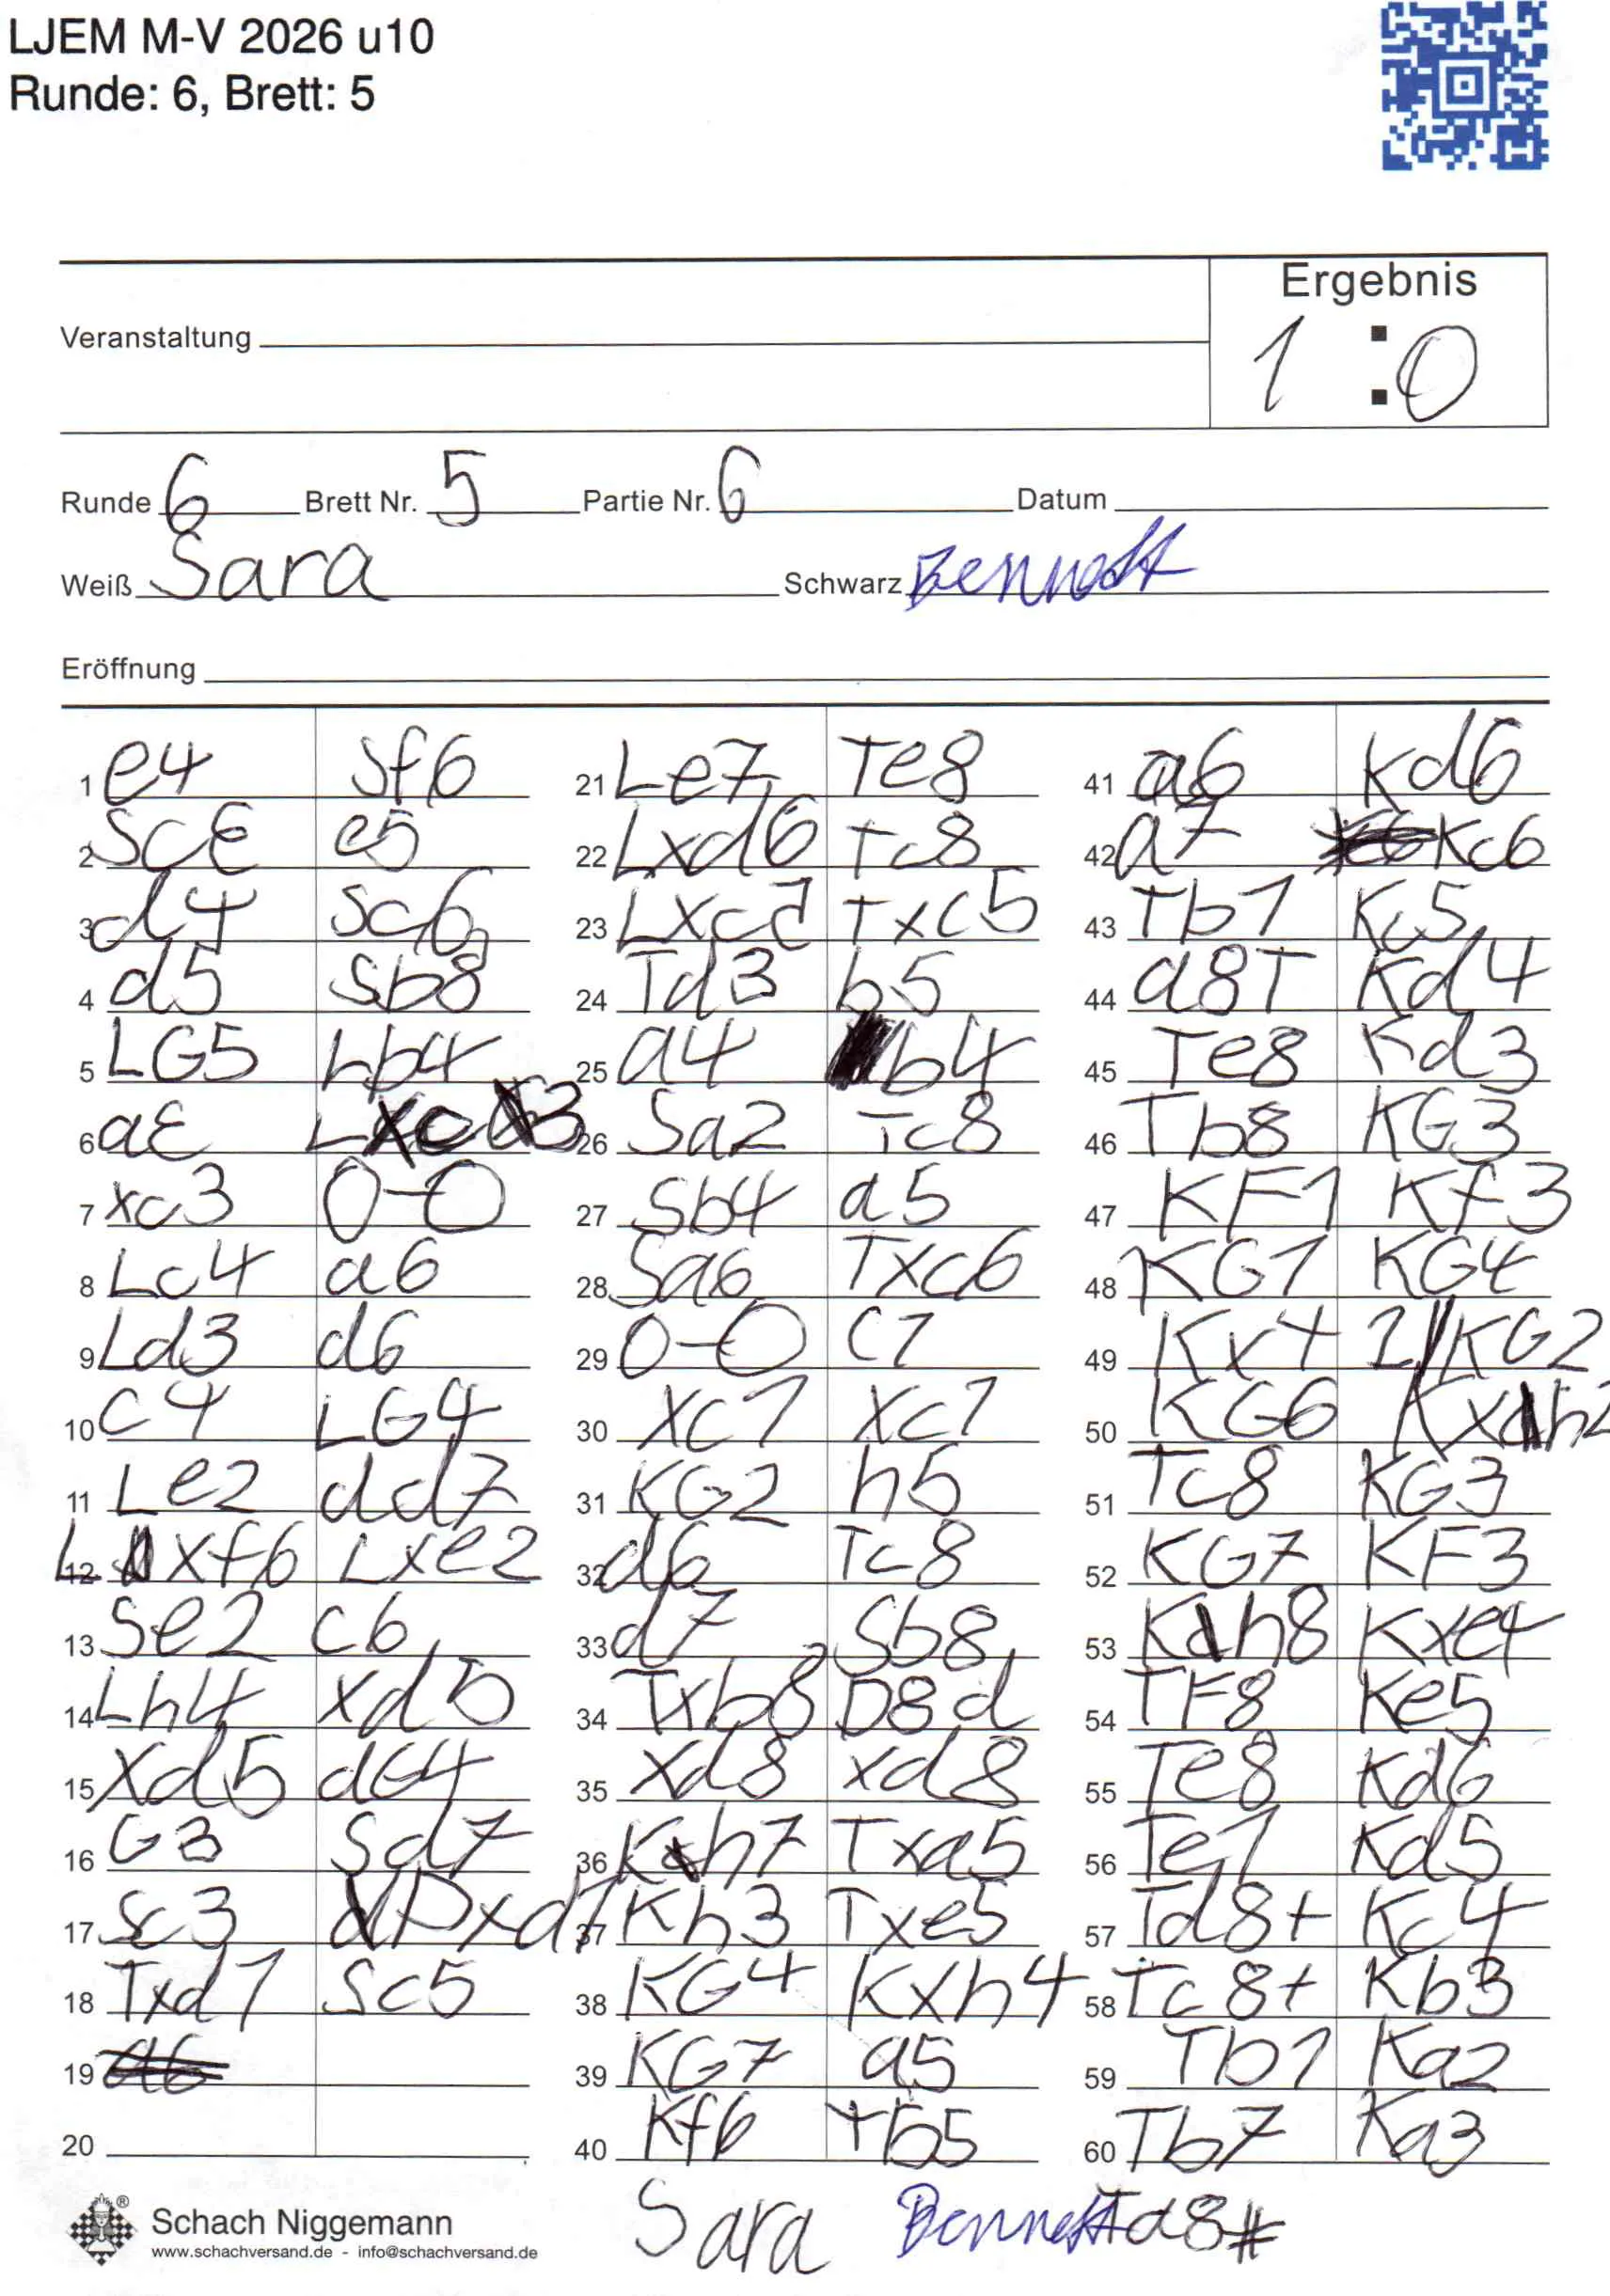 LJEM M-V 2026 u10
Runde: 6, Brett: 5
Ergebnis
1 : 0
Veranstaltung
Runde 6 Brett Nr. 5 Partie Nr. 6 Datum
Weiß Sara Schwarz Bennett
Eröffnung
1 e4 Sf6
2 Sc3 e5
3 d4 Sc6
4 d5 Sb8
5 LG5 Lb4
6 a3 Lxc3
7 xc3 0-0
8 Lc4 a6
9 Ld3 d6
10 c4 LG4
11 Le2 dd7
12 Lxf6 Lxe2
13 Se2 c6
14 Lh4 xd5
15 xd5 dG4
16 G3 Sd7
17 Sc3 Dxd1
18 Txd1 Sc5
19
20
21 Le7 Te8
22 Lxd6 Tc8
23 Lxc5 Txc5
24 Td3 b5
25 a4 b4
26 Sa2 Tc8
27 Sb4 a5
28 Sa6 Txc6
29 0-0 c1
30 xc1 xc1
31 KG2 h5
32 d6 Tc8
33 d7 Sb8
34 Txb8 D8d
35 xd8 xd8
36 Kh7 Txa5
37 Kh3 Txe5
38 KG4 Kxh4
39 KG7 a5
40 Kf6 Tb5
41 a6 Kd6
42 a7 Kc6
43 Tb1 Kc5
44 a8T Kd4
45 Te8 Kd3
46 Tb8 KG3
47 KF1 Kf3
48 KG1 KG4
49 Kx+1 KG2
50 KG6 Kxh2
51 Tc8 KG3
52 KG7 KF3
53 Kh8 Kxe4
54 TF8 Ke5
55 Te8 Kd6
56 Te1 Kd5
57 Td8+ Kc4
58 Tc8+ Kb3
59 Tb1 Ka2
60 Tb7 Ka3
Sara Bennett Td8#
Schach Niggemann
www.schachversand.de - info@schachversand.de